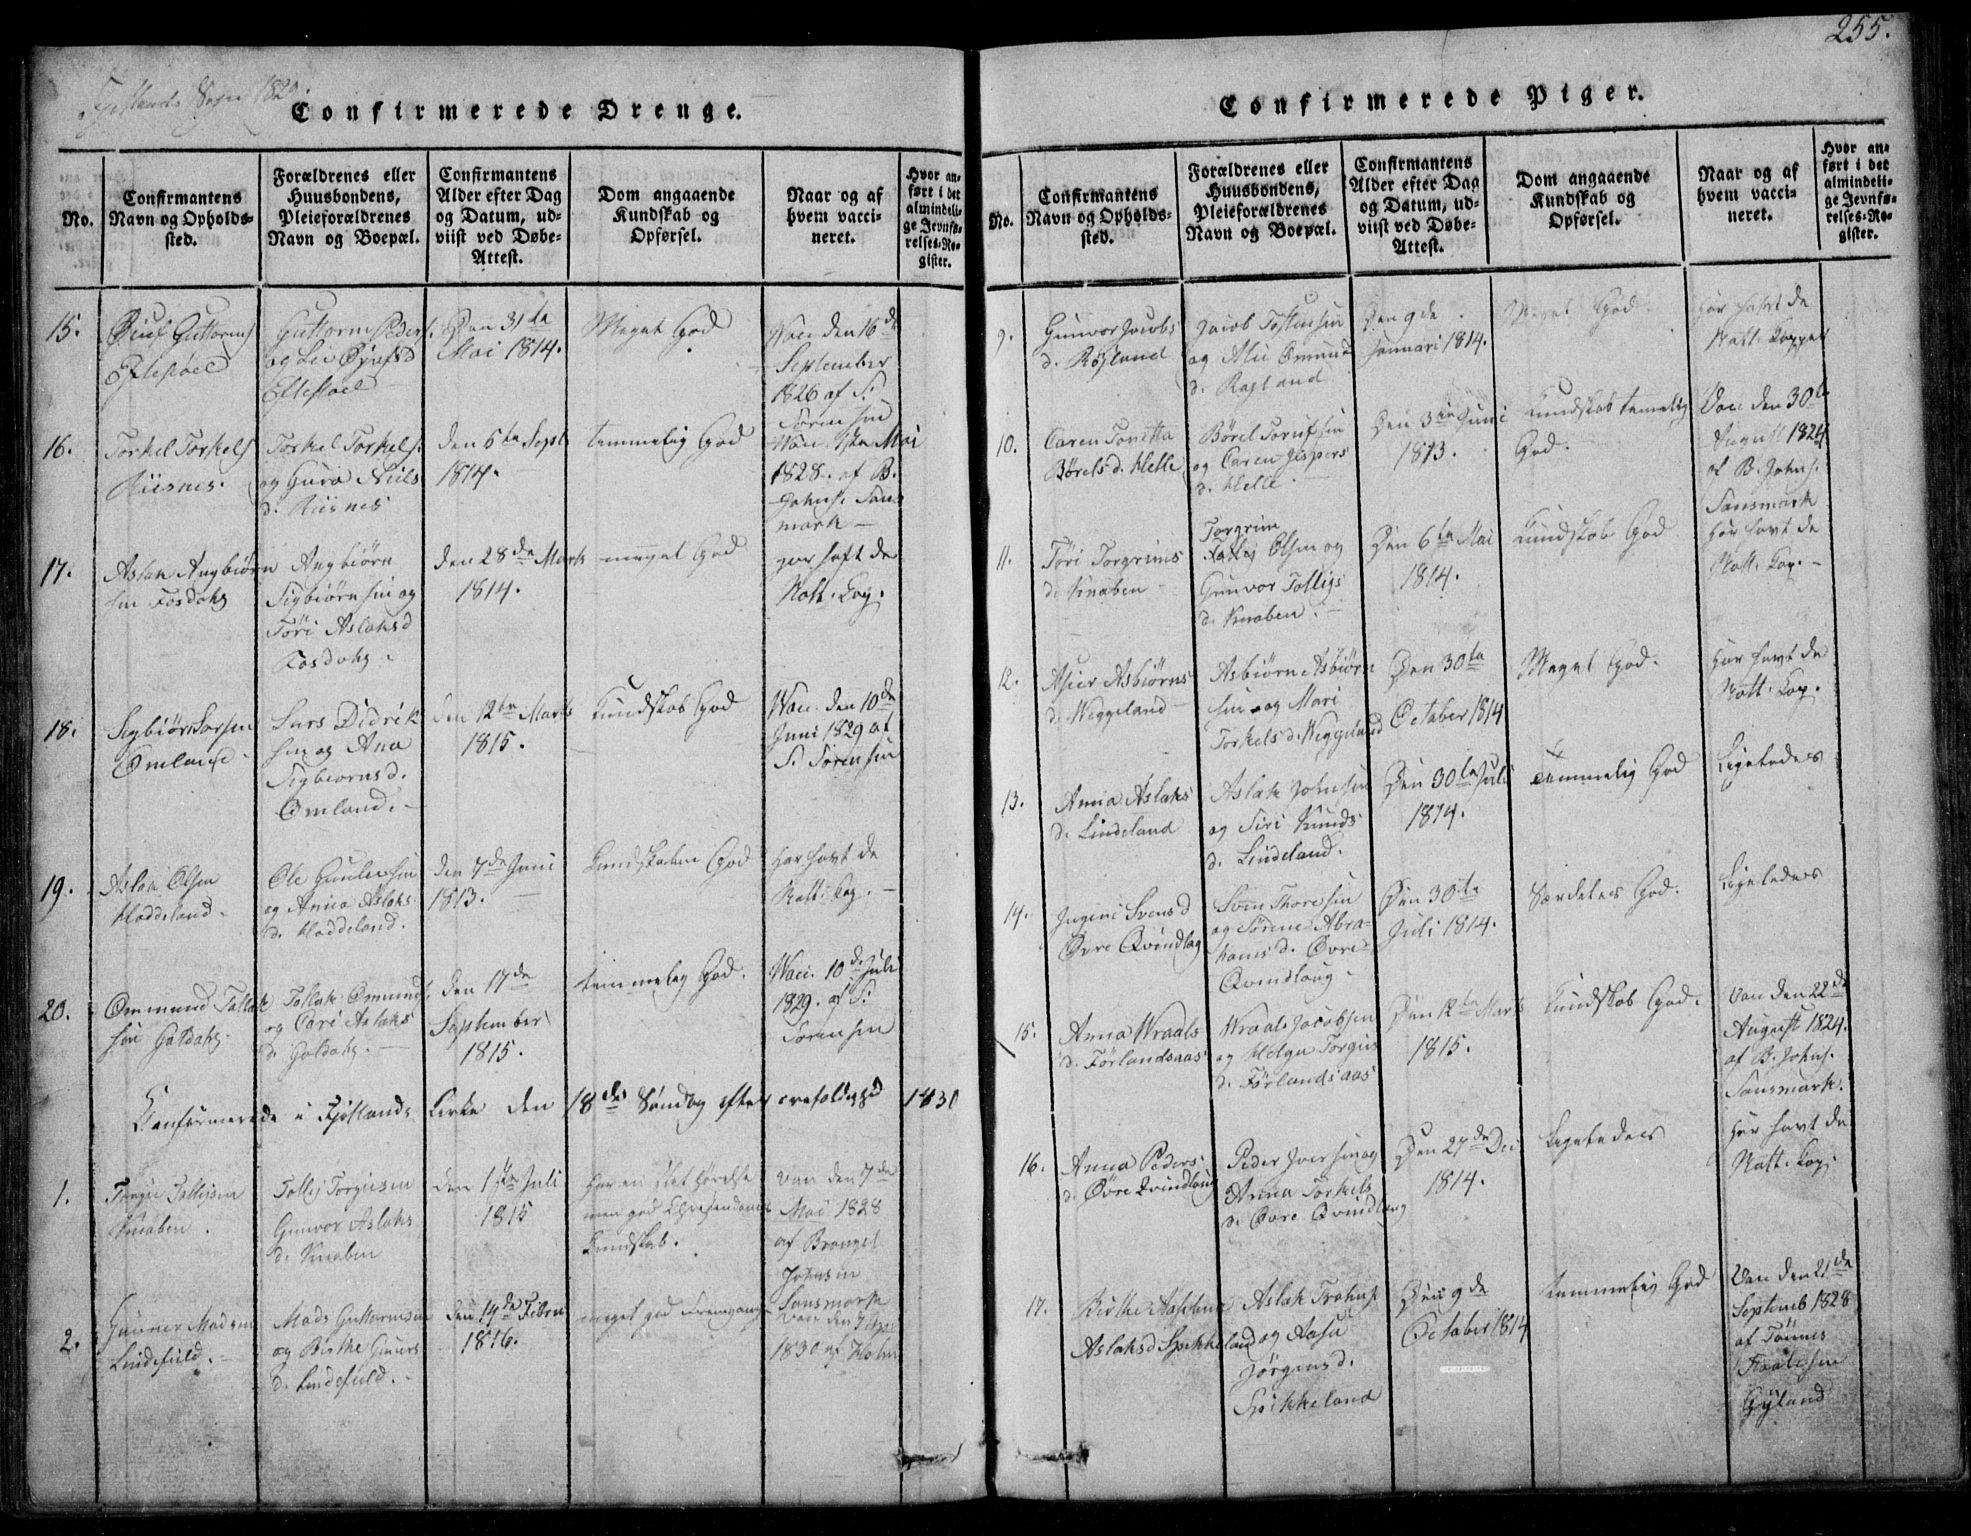 255.
Sogn 1829
Confirmerede Drenge.
No.
Confirmantens
Navn og Opholds-
sted.
Forældrenes eller
Huusbondens,
Pleieforældrenes
Navn og Boepæl.
Confirmantens
Alder efter Dag
og Datum, ud-
viist ved Døbe-
Attest.
Dom angaaende
Kundskab og
Opførsel.
Naar og af
hvem vacci-
neret.
Hvor an-
ført i det
almindeli-
ge Jevnfø-
relses-Re-
gister.
15.
Guttorms
Eftestøel
Guttorm Peders.
og Siv
Eftestøel
Den 31te
Mai 1814.
Meget God
Vacc. den 16de
September
1826 af S.
Sørensen
16.
Torkel Torkels
Riisnes.
Torkel Torkels.
og Guro Niels
d. Riisnes
den 5te Sept
1814.
temmelig God
Mai
1828. af B.
Johns. San
mark
17.
Aslak Angbiørn
sen Fosdahl
Angbiørn
Sigbiørnsen og
Tøri Aslaksd
Fosdahl
den 28de Mark
1814.
meget God
har haft de
Natt. Cop.
18.
Sigbiørn Larsen
Omland
Lars Didrik
sen og Ana
Sigbiørnsd.
Omland.
den 12te Marts
1815.
Kundskab God
Vacc. den 10de
Juni 1829 af
S. Sørensen
19.
Aslak Olsen
Haddeland
Ole Gunlevsen
og Anna Aslaks
d. Haddeland.
den 7de Juni
1813.
Kundskaben God
har havt de
Natt. Cop.
20.
Ommund Tallak
sen
Tallak Omunds.
og Cari Aslaks
d.
den 17de
September
1815.
temmelig God.
Vacc. 10de Juli
1829. af S.
Sørensen
Confirmerede i Fjotlands Kirke den 18de Søndag efter 1830
1.
Torgie Tolligsen
Knaben.
Tollig Torgiesen
Gunvor Aslaks
d. Knaben
den 1ste Juli
1815
Har en slet
men god Christendoms
Kundskab.
Vac den 7de
Mai 1828
af Brongel
Johnsen
Sansmark
2.
Gunner Madsen
Lindefield.
Mads Guttormsen
og Birthe Guners
d. Lindefield.
den 14de Febru
1816.
meget god Fremgang
Vac den
1830 af Holm
Confirmerede Piger.
No.
Confirmantens
Navn og Opholds-
sted.
Forældrenes eller
Huusbondens,
Pleieforældrenes
Navn og Boepæl.
Confirmantens
Alder efter Dag
og Datum, ud-
viist ved Døbe-
Attest.
Dom angaaende
Kundskab og
Opførsel.
Naar og af
hvem vacci-
neret.
Hvor an-
ført i det
almindeli-
ge Jevnfø-
relses-Re-
gister.
9.
Gunvor Jacobs
d. Røyland
Jacob Tostensen
og Omund
d. Røyland
Den 9de
Januari 1814.
Meget God.
Har havt de
Natt. Copper
10.
Caren Tonetta
Børels d. Helle
Børel Torufsen
og Caren Jespers
d. Helle.
Den 3die Juni
1813.
Kundskab temelig
God.
Vac den 30te
August 1824
af B. Johns.
Sansmark
11.
Tøri Torgrims
d. Knaben
Torgrim
Olsen og
Gunvor Tolligs
d. Knaben.
Den 6te Mai
1814.
Kundskab God
Har havt de
Natt. Cop.
12.
Asbiørns
d. Weggeland
Asbiørn Asbiørn
sen og Mari
Torkels d. Weggeland
Den 30te
October 1814
Meget God.
Har havt de
Natt. Cop.
13.
Anna Aslaks
d. Lindeland
Aslak Johnsen
og Siri Knuds
d. Lindeland.
Den 30te Juli
1814.
Temmelig God
Ligeledes
14.
Ingeri Svens d
Øvre Qvindlog
Sven Thoresen
og Sørene Abra-
hams d. Øvre
Qvindlaug
Den 30te
Juli 1814.
Særdeles God.
Ligeledes
15.
Anna Wraals
d. Førlandsaas
Wraals Jacobsen
og Helga Torgus
d. Førlandsaas
Den 12te Marts
1815.
Kundskab God.
Vac den 22de
August 1824.
af B. Johns.
Sansmark.
16.
Anna Peders
d. Øvre Qvindlaug
Peder Iversen og
Anna Torkels
d. Øvre Qvindlaug
Den 27de Dec
1814.
Ligeledes
Har havt de
Natt. Cop.
17.
Birthe
Aslaksd Spikkeland
Aslak
og Aasa
Jørgensd.
Spikkeland
Den 9de
October 1814
temmelig God
Vac den 21de
Septemb 1828
af Tønnes
Gyland